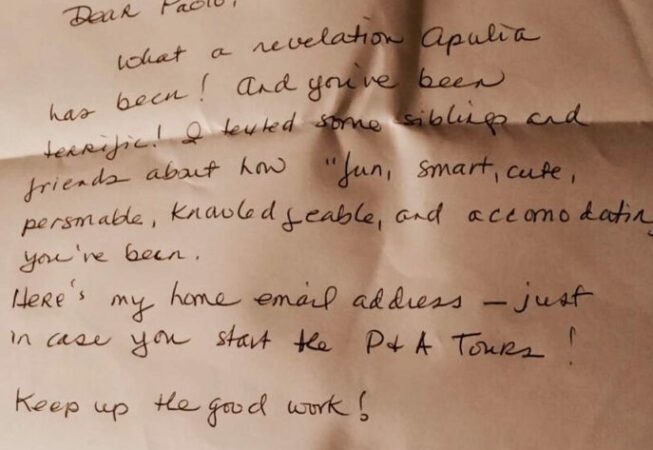 Dear Paolo,
What a revelation Apulia
has been! And you've been
terrific! I texted some siblings and
friends about how "fun, smart, cute,
personable, knowledgeable, and accomodatin
you've been.
Here's my home email address – just
in case you start the P & A Tours!
Keep up the good work!